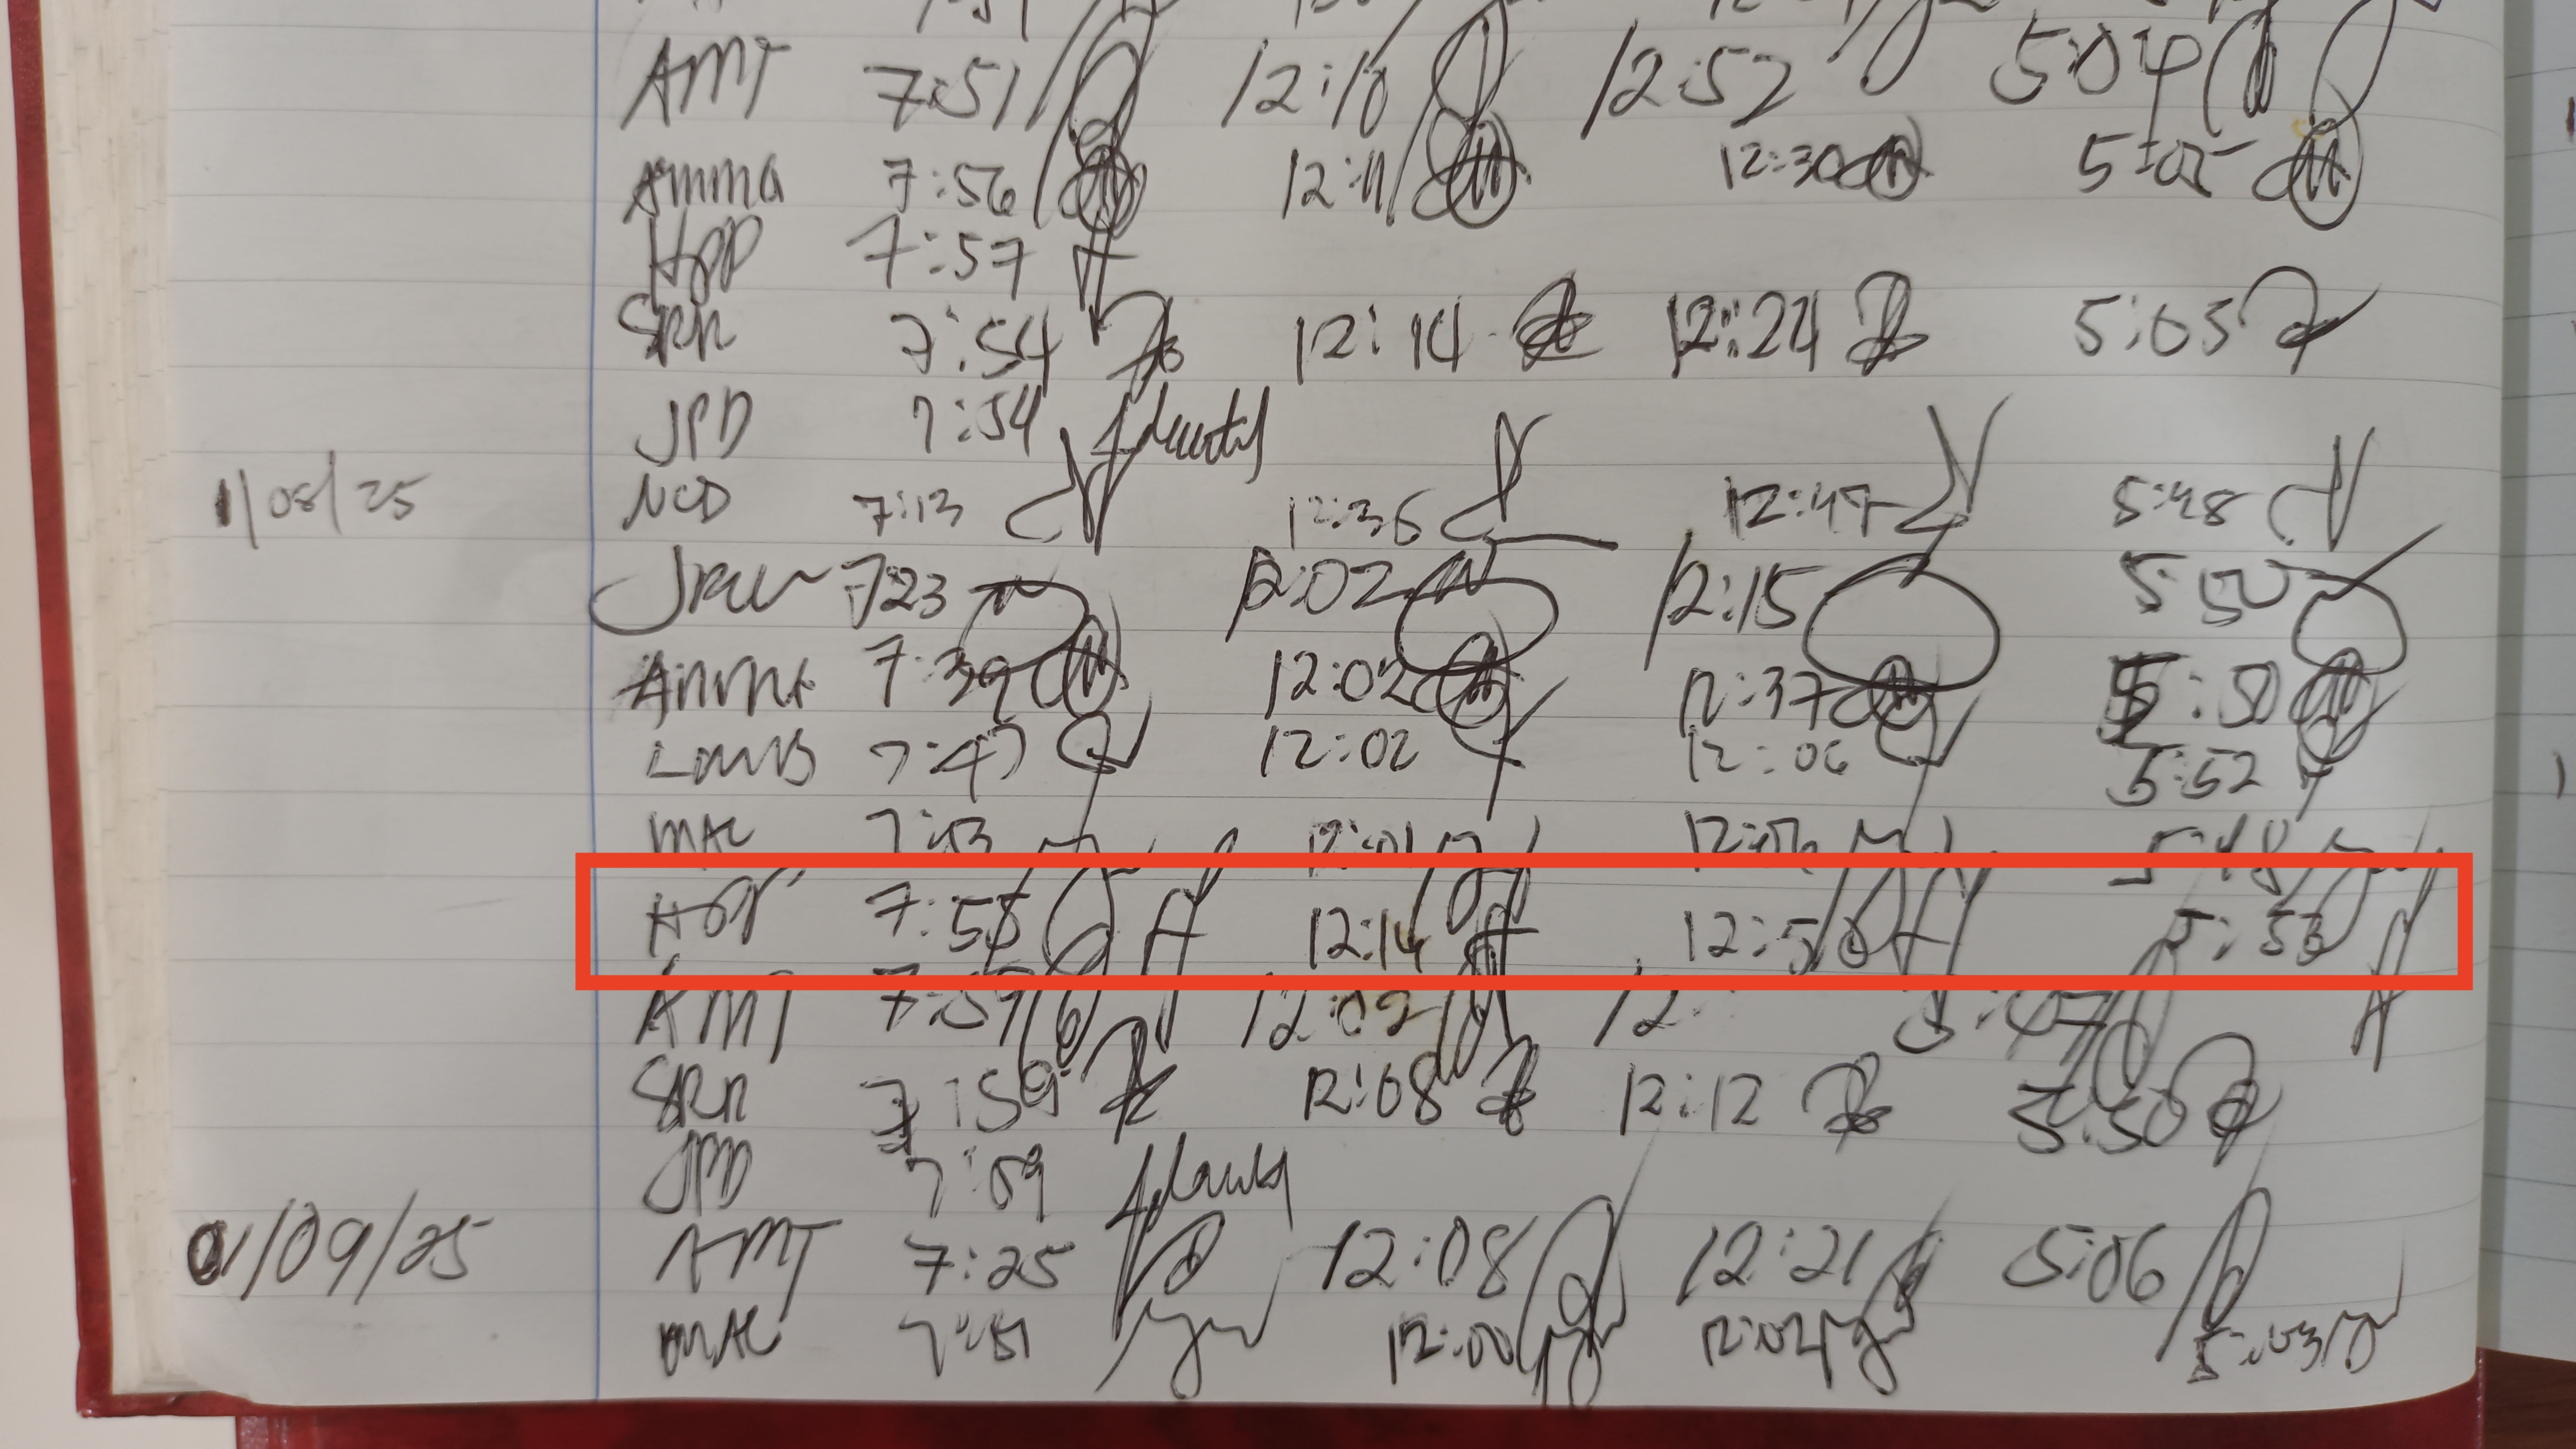 AMT 7:51 12:10 12:52 5:04
Amma 7:56 12:11 12:30 5:05
HPD 7:57
SRR 7:54 12:14 12:24 5:05
JPD 7:54
1/08/25 NCD 7:13 12:36 12:47 5:48
7:23 12:02 12:15 5:50
Amma 7:39 12:02 12:37 5:50
LMWB 7:47 12:02 12:06 5:52
MAC 7:53 12:01 12:06 5:48
7:55 12:14 12:50 5:53
AMT 7:59 12:02 12: 5:47
SRR 7:59 12:08 12:12 5:50
JPD 7:59
01/09/25 AMT 7:25 12:08 12:21 5:06
MAC 7:51 12:00 12:04 5:03